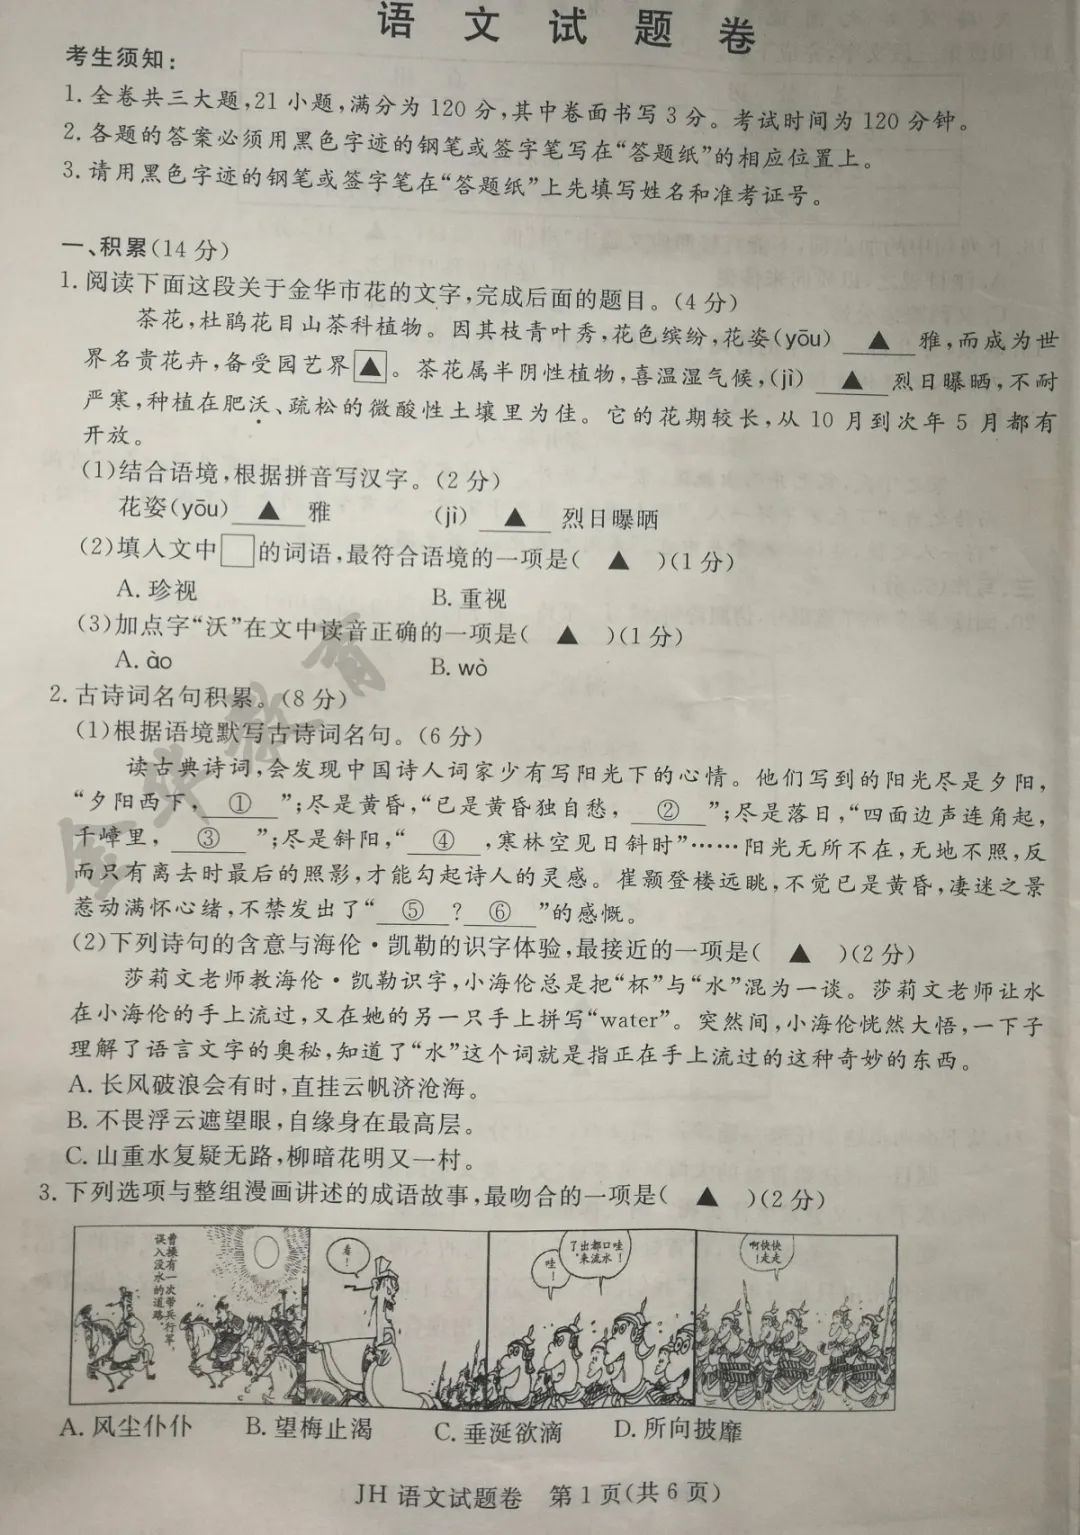 语文试题卷
考生须知:
1.全卷共三大题,21小题,满分为120分,其中卷面书写3分。考试时间为120分钟。
2.各题的答案必须用黑色字迹的钢笔或签字笔写在“答题纸”的相应位置上。
3.请用黑色字迹的钢笔或签字笔在“答题纸”上先填写姓名和准考证号。
一、积累(14分)
1.阅读下面这段关于金华市花的文字,完成后面的题目。(4分)
茶花,杜鹃花目山茶科植物。因其枝青叶秀,花色缤纷,花姿(yōu) ▲ 雅,而成为世
界名贵花卉,备受园艺界▲。茶花属半阴性植物,喜温湿气候,(jì) ▲ 烈日曝晒,不耐
严寒,种植在肥沃、疏松的微酸性土壤里为佳。它的花期较长,从10月到次年5月都有
开放。
(1)结合语境,根据拼音写汉字。(2分)
花姿(yōu) ▲ 雅 (jì) ▲ 烈日曝晒
(2)填入文中□的词语,最符合语境的一项是( ▲ )(1分)
A.珍视 B.重视
(3)加点字“沃”在文中读音正确的一项是( ▲ )(1分)
A.ào B.wò
2.古诗词名句积累。(8分)
(1)根据语境默写古诗词名句。(6分)
读古典诗词,会发现中国诗人词家少有写阳光下的心情。他们写到的阳光尽是夕阳,
“夕阳西下, ① ”;尽是黄昏,“已是黄昏独自愁, ② ”;尽是落日,“四面边声连角起,
千嶂里, ③ ”;尽是斜阳,“ ④ ,寒林空见日斜时”……阳光无所不在,无地不照,反
而只有离去时最后的照影,才能勾起诗人的灵感。崔颢登楼远眺,不觉已是黄昏,凄迷之景
惹动满怀心绪,不禁发出了“ ⑤ ? ⑥ ”的感慨。
(2)下列诗句的含意与海伦·凯勒的识字体验,最接近的一项是( ▲ )(2分)
莎莉文老师教海伦·凯勒识字,小海伦总是把“杯”与“水”混为一谈。莎莉文老师让水
在小海伦的手上流过,又在她的另一只手上拼写“water”。突然间,小海伦恍然大悟,一下子
理解了语言文字的奥秘,知道了“水”这个词就是指正在手上流过的这种奇妙的东西。
A.长风破浪会有时,直挂云帆济沧海。
B.不畏浮云遮望眼,自缘身在最高层。
C.山重水复疑无路,柳暗花明又一村。
3.下列选项与整组漫画讲述的成语故事,最吻合的一项是( ▲ )(2分)
曹操有一次带兵行军,
误入没水的道路
看!
哇!
哇!口水都流出来了
快走快走啊!
A.风尘仆仆 B.望梅止渴 C.垂涎欲滴 D.所向披靡
JH语文试题卷 第1页(共6页)
金华教育